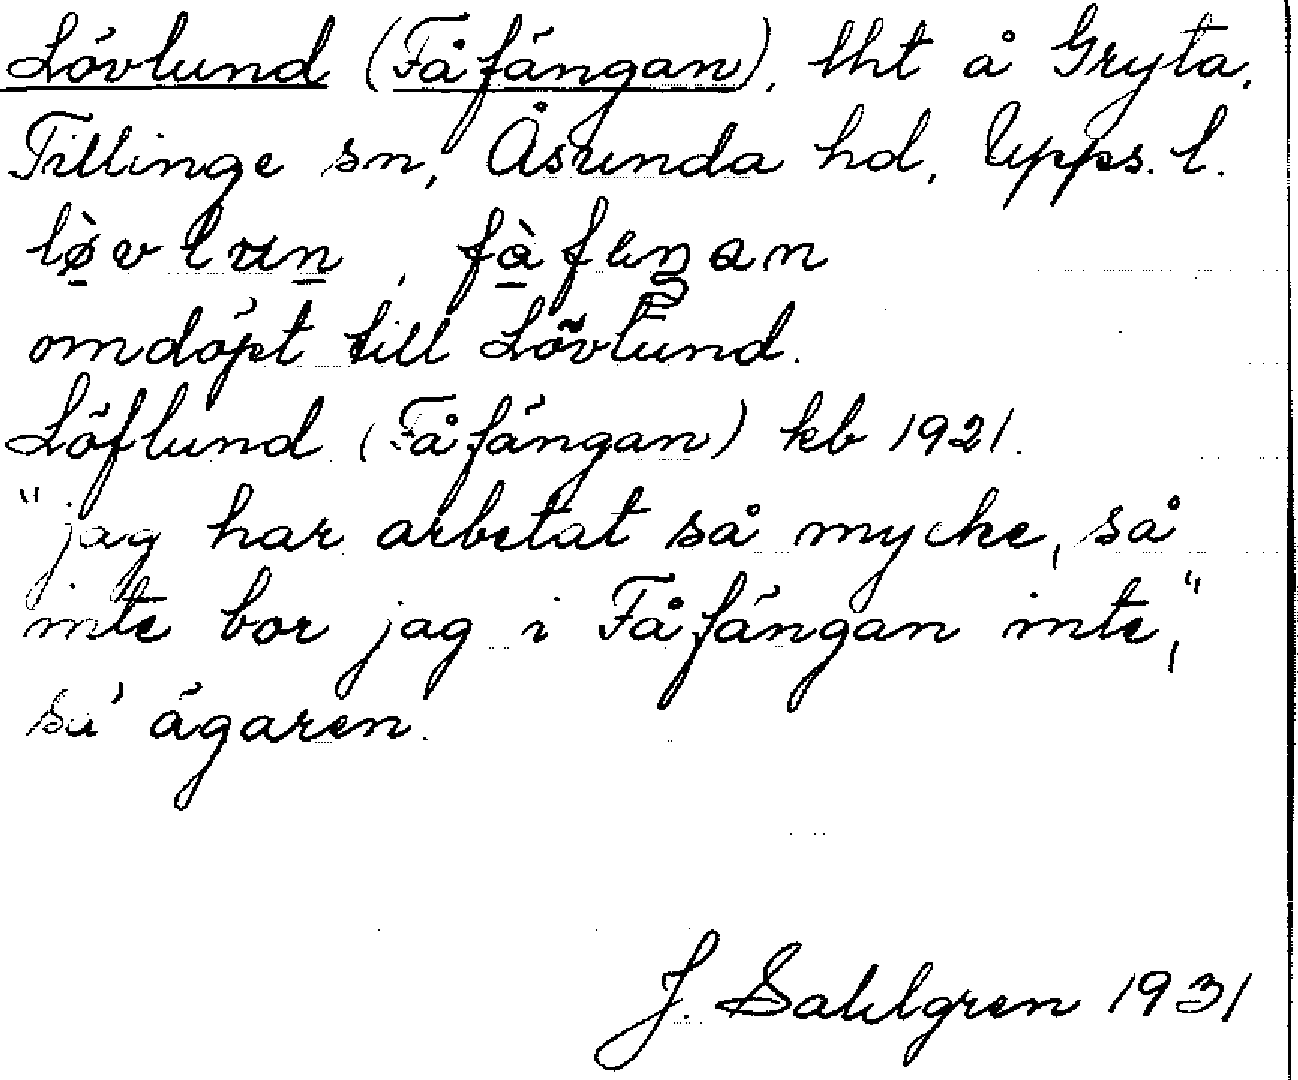 Lövlund (Fåfängan), lht å Gryta,
Tillinge sn, Åsunda hd, Upps. l.
lø̀vlun, fàfeŋan
omdöpt till Lövlund.
Löflund (Fåfängan) kb 1921.
"jag har arbetat så mycke, så
inte bor jag i Fåfängan inte,"
sa' ägaren.
J. Sahlgren 1931